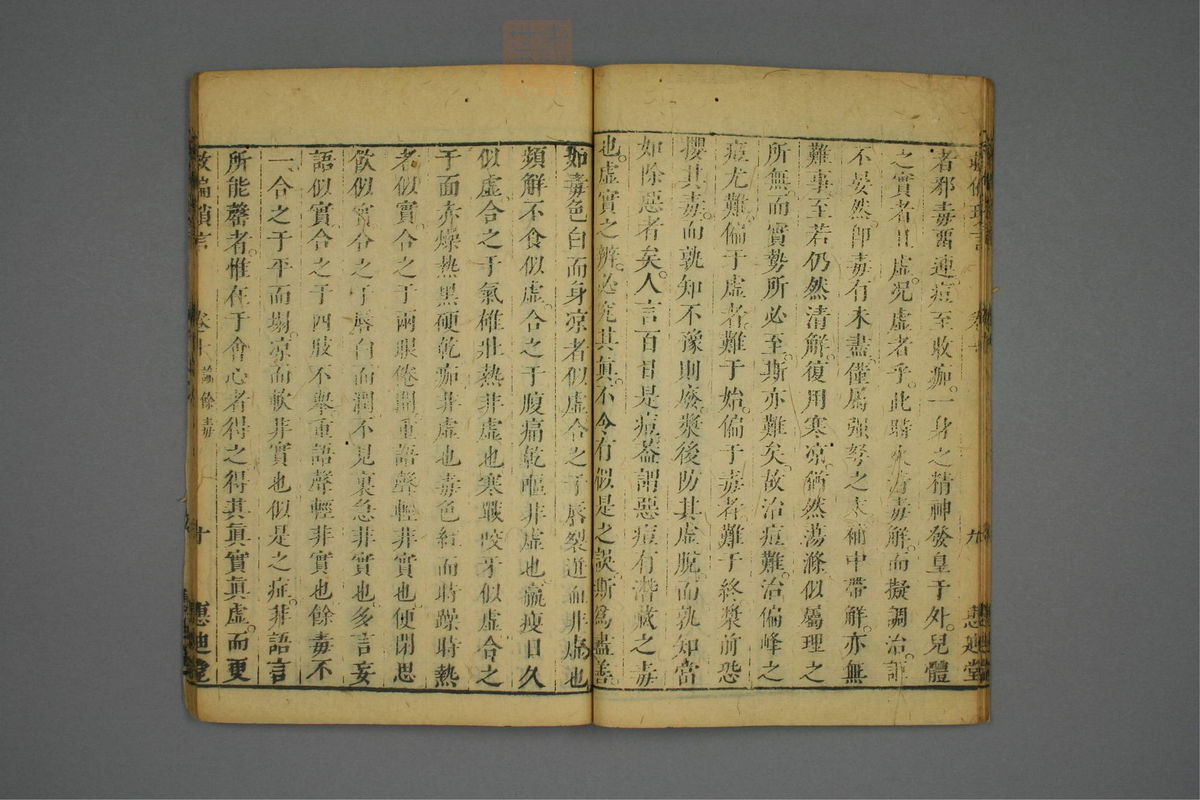 者邪毒留連痘至收痂一身之精神發皇于外兒體
之實者且虛況虛者乎此時火清毒解而擬調治詎
不晏然即毒有未盡僅屬强弩之末補中帶解亦無
難事至若仍然清解復用寒凉猶然蕩滌似屬理之
所無而實勢所必至斯亦難矣故治痘難治偏峰之
痘尤難偏于虛者難于始偏于毒者難于終漿前恐
攖其毒而孰知不豫則廢漿後防其虛脫而孰知當
如除惡者矣人言百日是痘葢謂惡痘有潛藏之毒
也虛實之辨必究其眞不令有似是之談斯爲盡善
如毒色白而身凉者似虛合之于唇裂遊血非虛也
頻解不食似虛合之于腹痛乾嘔非虛也羸瘦日久
似虛合之于氣雄壯熱非虛也寒戰咬牙似虛合之
于面赤燥熱黑硬乾痂非虛也毒色紅而時躁時熱
者似實合之于兩眼倦開重語聲輕非實也便閉思
飲似實合之于唇白而潤不見裏急非實也多言妄
語似實合之于四肢不舉重語聲輕非實也餘毒不
一合之于平而塌凉而軟非實也似是之症非語言
所能罄者惟在于會心者得之得其眞實眞虛而更
救偏瑣言 卷十 論餘毒 十 惠迪堂